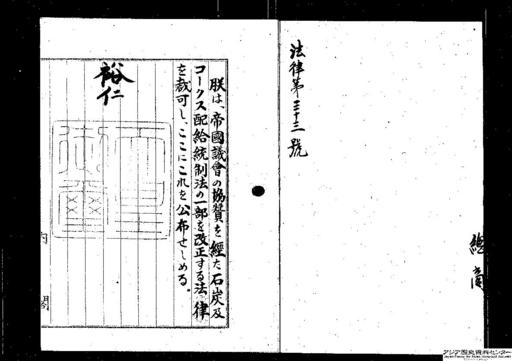 法律第三十三號
朕は、帝國議會の協賛を經た石炭及
コークス配給統制法の一部を改正する法律
を裁可し、ここにこれを公布せしめる。
裕仁
天皇御璽
内閣
アジア歴史資料センター